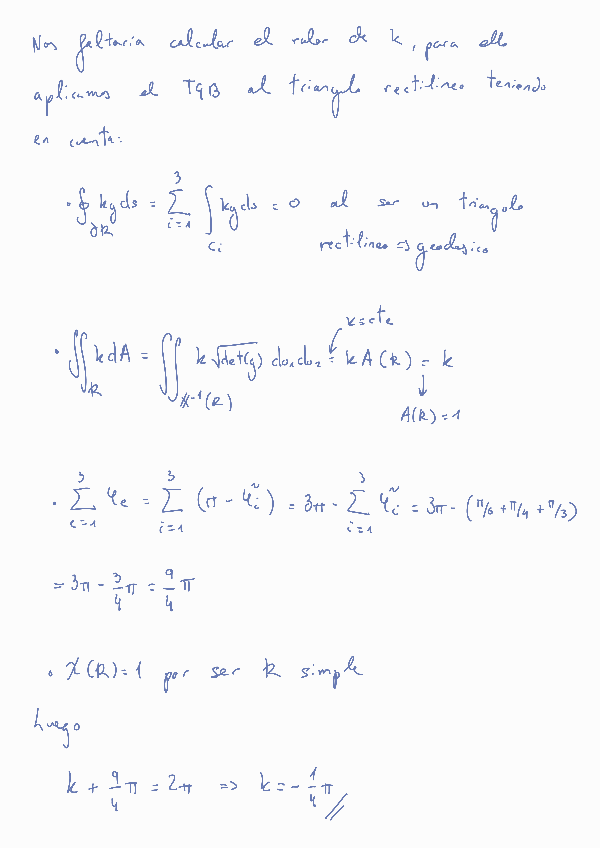 Nos faltaría calcular el valor de k, para ello
aplicamos el TGB al triangulo rectilineo teniendo
en cuenta:
· ∮_{∂R} kg ds = Σ_{i=1}^{3} ∫_{Ci} kg ds = 0 al ser un triangulo
rectilineo => geodesico
k=cte
· ∬_R k dA = ∬_{𝕏^{-1}(R)} k √det(g) du₁du₂ = k A(R) = k
A(R)=1
· Σ_{e=1}^{3} φe = Σ_{i=1}^{3} (π - φ̃i) = 3π - Σ_{i=1}^{3} φ̃i = 3π - (π/6 + π/4 + π/3)
= 3π - 3/4 π = 9/4 π
· χ(R)=1 por ser R simple
Luego
k + 9/4 π = 2π => k = - 1/4 π //